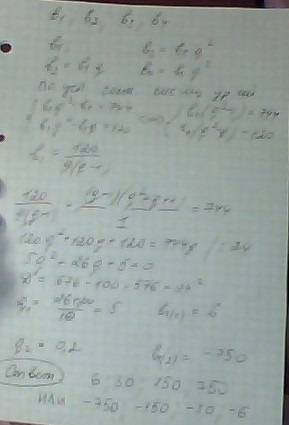 b₁, b₂, b₃, b₄
b₁, b₃ = b₁q²
b₂ = b₁q b₄ = b₁q³
по усл сост систему ур-ний
{ b₁q³ - b₁ = 744 <=> { b₁(q³-1) = 744
{ b₁q² - b₁q = 120 { b₁(q²-q) = 120
b₁ = 120/q(q-1)
120/q(q-1) · (q-1)(q²+q+1)/1 = 744
120q² + 120q + 120 = 744q | : 24
5q² - 26q + 5 = 0
D = 676 - 100 = 576 = 24²
q₁ = /10 = 5 b₁(1) = 6
q₂ = 0,2 b₁(2) = -750
Ответ
6 30 150 750
или -750 -150 -30 -6